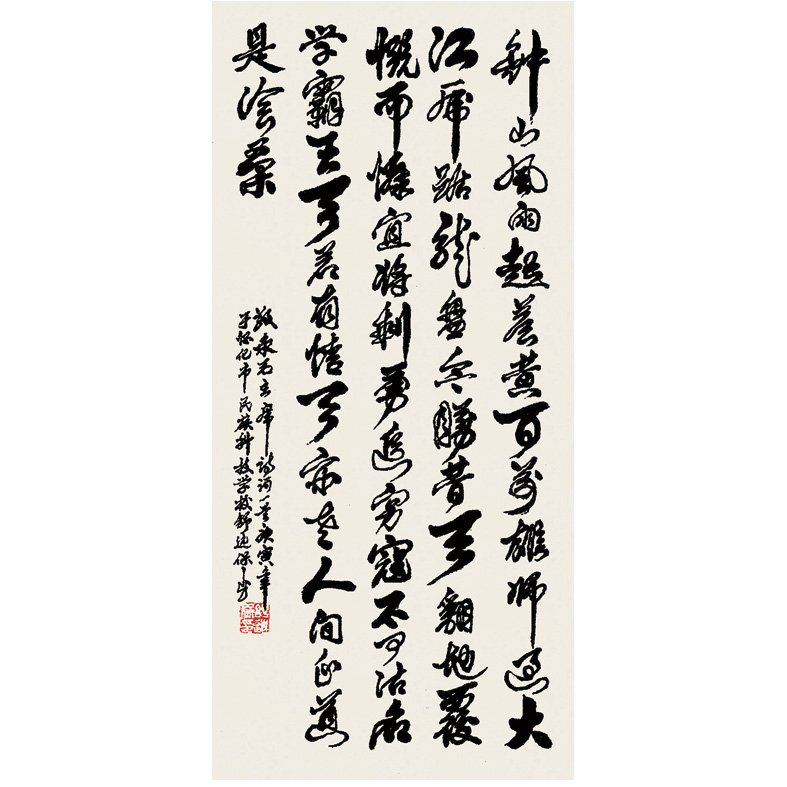 钟山风雨起苍黄百万雄师过大
江虎踞龙盘今胜昔天翻地覆
慨而慷宜将剩勇追穷寇不可沽名
学霸王天若有情天亦老人间正道
是沧桑
敬录毛主席诗词一首庚寅年
于怀化市民族科技学校舒